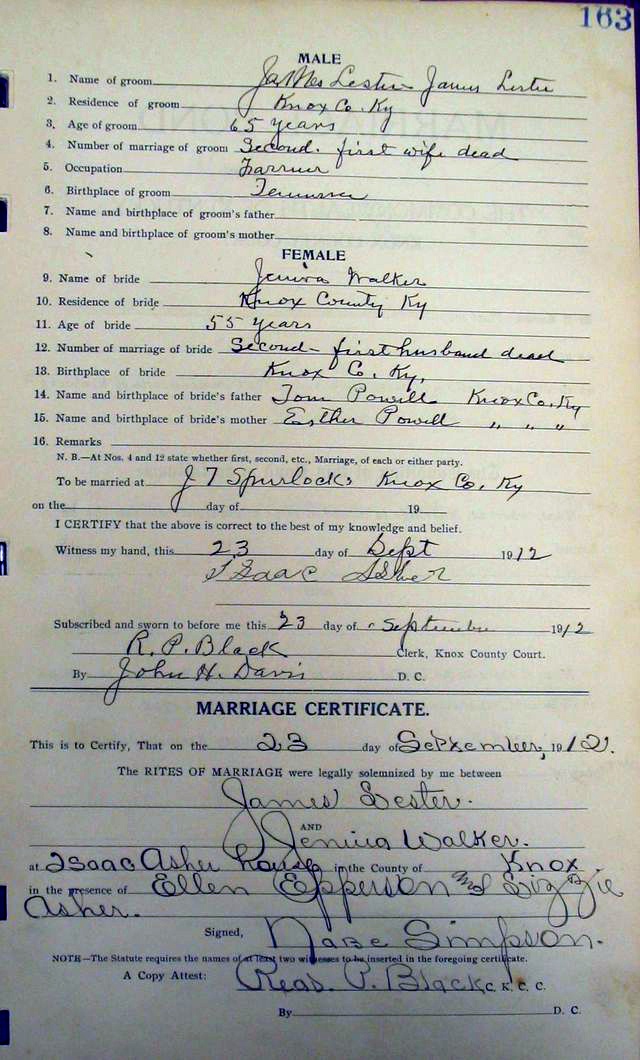 163
MALE
1. Name of groom James Lester James Lester
2. Residence of groom Knox Co. Ky
3. Age of groom 65 years
4. Number of marriage of groom Second. first wife dead
5. Occupation Farmer
6. Birthplace of groom Tennessee
7. Name and birthplace of groom's father
8. Name and birthplace of groom's mother
FEMALE
9. Name of bride Walker
10. Residence of bride Knox County Ky
11. Age of bride 55 years
12. Number of marriage of bride Second- first husband dead
13. Birthplace of bride Knox Co. Ky,
14. Name and birthplace of bride's father Tom Powill Knox Co. Ky
15. Name and birthplace of bride's mother Easther Powill " " "
16. Remarks
N. B.—At Nos. 4 and 12 state whether first, second, etc., Marriage, of each or either party.
To be married at J T Spurlocks Knox Co. Ky
on the day of 19
I CERTIFY that the above is correct to the best of my knowledge and belief.
Witness my hand, this 23 day of Sept 1912
Isaac Asher
Subscribed and sworn to before me this 23 day of September 1912
R. P. Black Clerk, Knox County Court.
By John H. Davis D. C.
MARRIAGE CERTIFICATE.
This is to Certify, That on the 23 day of September, 1912.
The RITES OF MARRIAGE were legally solemnized by me between
James Lester.
AND
Walker.
at Isaac Asher house in the County of Knox
in the presence of Ellen Epperson and Lizzie
Asher.
Signed, Simpson.
NOTE—The Statute requires the names of at least two witnesses to be inserted in the foregoing certificate.
A Copy Attest: Reas. P. Black C. K. C. C.
By D. C.